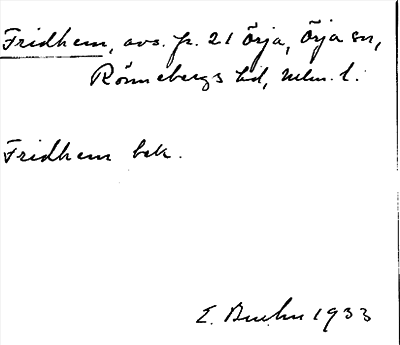 Fridhem, avs. fr. 21 Örja, Örja sn,
Rönnebergs hd, Mlm. l.
Fridhem bek.
E. 1933